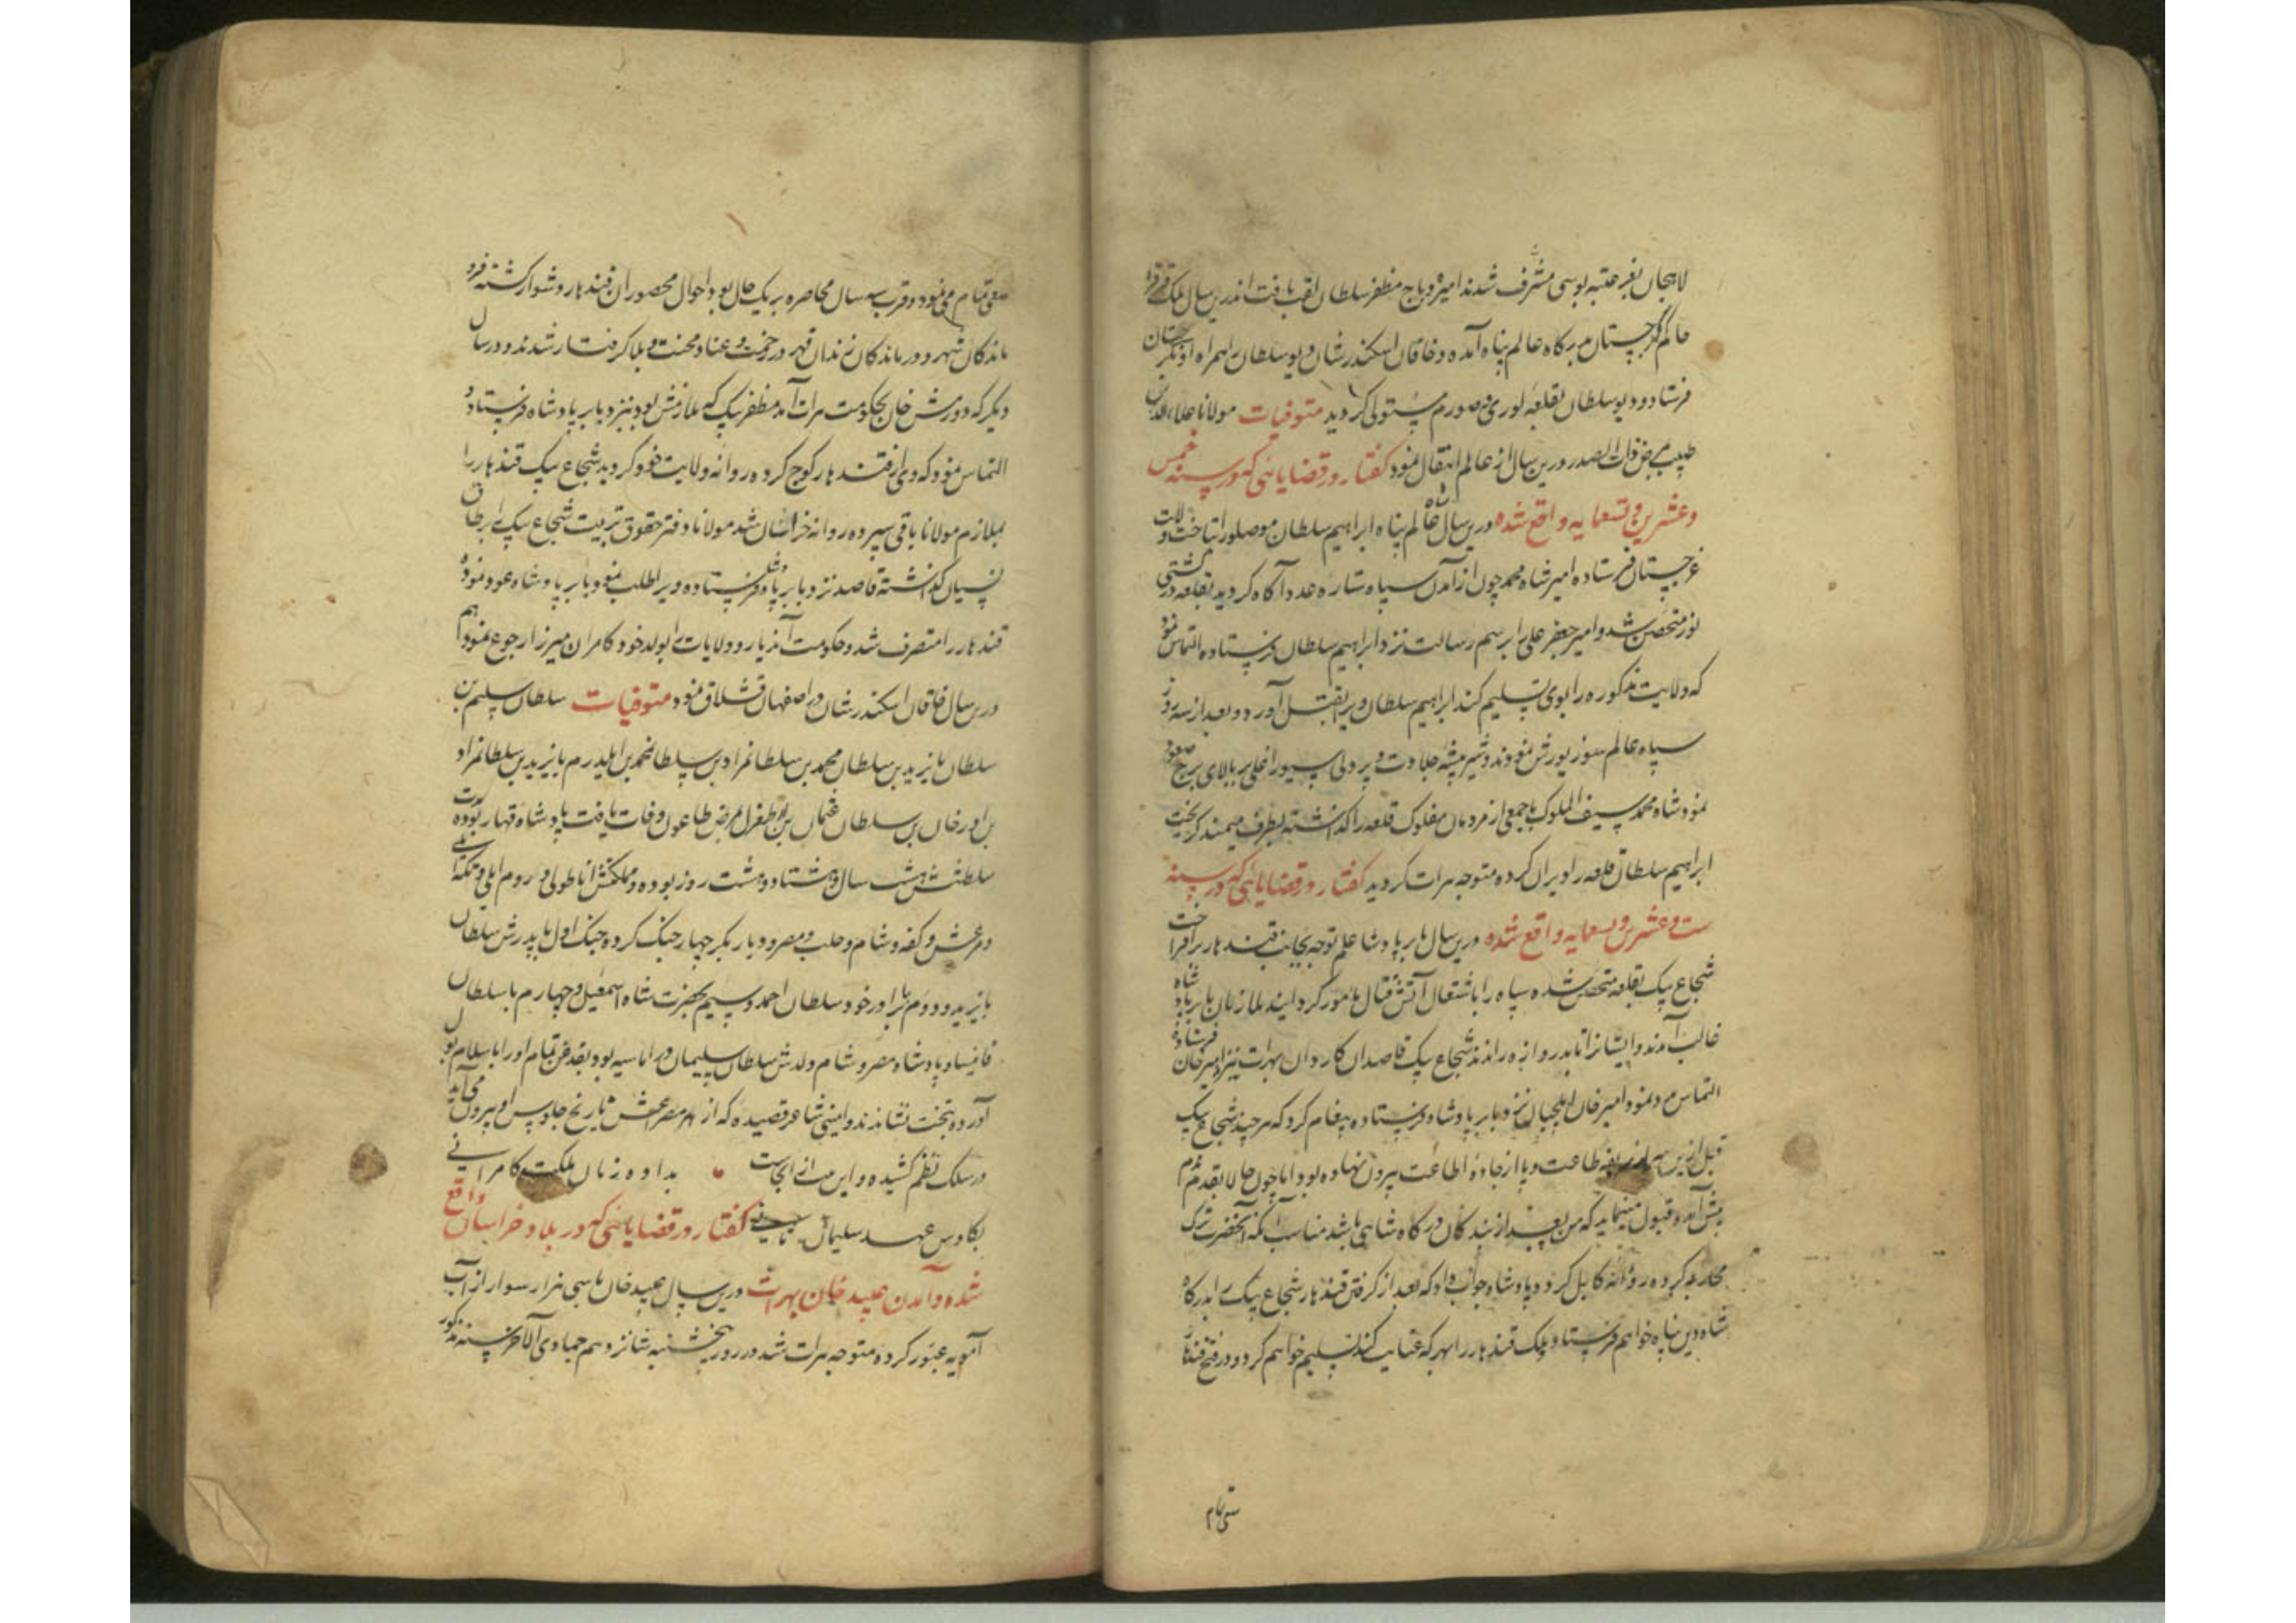 لاهجان بعز عتبه بوسی مشرف شدند امیره دباج مظفر سلطان لقب یافت اندرین سال ملک
حاکم گرجستان بدرگاه عالم پناه آمده و خاقان اسکندر شان دیو سلطان را همراه او بگرجستان
فرستاد و دیو سلطان بقلعه لوری و صورم مستولی گردید متوفیات مولانا علاء الدین
طبیب بمرض ذات الصدر درین سال از عالم انتقال نمود گفتار در قضایائی که در سنه خمس
و عشرین و تسعمایه واقع شده درین سال شاه عالم پناه ابراهیم سلطان موصلو را بتاخت ولایت
غرجستان فرستاده امیر شاه محمد چون از آمدن سپاه ستاره عدد آگاه گردید بقلعه
متحصن شد و امیر جعفر علی را برسم رسالت نزد ابراهیم سلطان فرستاده التماس نمود
که ولایت مذکوره را بوی تسلیم کند ابراهیم سلطان ویرا بقتل آورد و بعد از سه روز
سپاه عالم سوز یورش نمودند و شیر بیشه جلادت و پر دلی بر بالای برج صعود
نمود شاه محمد سیف الملوک با جمعی از مردمان مفلوک قلعه را گذاشته بطرف میمند گریخت
ابراهیم سلطان قلعه را ویران کرده متوجه هرات گردید گفتار در قضایائی که در سنه
ست و عشرین و تسعمایه واقع شده درین سال بابر پادشاه علم توجه بجانب قندهار برافراخت
شجاع بیک بقلعه متحصن شده سپاه را باشتعال آتش قتال مامور گردانید ملازمان بابر پادشاه
غالب آمدند و ایشانرا تا بدروازه راندند شجاع بیک قاصدان کاردان بهرات نزد امیر خان فرستاده
التماس مدد نمود امیر خان ایلچیان نزد بابر پادشاه فرستاده پیغام کرد که هر چند شجاع بیک
قبل ازین طاعت و پا از جاده اطاعت بیرون نهاده بود اما چون حالا بقدم ندم
پیش آمده قبول مینماید که من بعد از بندگان درگاه شاهی باشد مناسب آنکه آنحضرت ترک
محاربه کرده روانه کابل گردد پادشاه جواب داد که بعد از گرفتن قندهار شجاع بیک را بدرگاه
شاه دین پناه خواهم فرستاد و ملک قندهار را بهر که عنایت کند تسلیم خواهم کرد و در فتح قندهار
سعی تمام
سعی تمام می نمود و قرب سه سال محاصره بر یک حال بود احوال محصوران قندهار دشوار گشته فرو
ماندگان شهر و درماندگان زندان قهر در زحمت و عنا و محنت و بلا گرفتار شدند و در سال
دیگر که دورمش خان بحکومت هرات آمد مظفر بیک که ملازمش بود نزد بابر پادشاه فرستاد و
التماس نمود که وی از قندهار کوچ کرده روانه ولایت خود گردید شجاع بیک قندهار را
بملازم مولانا باقی سپرده روانه خراسان شد مولانا دفتر حقوق تربیت شجاع بیک را بر طاق
نسیان گذاشته قاصد نزد بابر پادشاه فرستاده ویرا طلب نمود بابر پادشاه عود نموده
قندهار را متصرف شد و حکومت آن دیار و ولایات را بولد خود کامران میرزا رجوع نمود و هم
درین سال خاقان اسکندر شان در اصفهان قشلاق نمود متوفیات سلطان سلیم بن
سلطان بایزید بن سلطان محمد بن سلطانمراد بن سلطانمحمد بن ایلدرم بایزید بن سلطانمراد
بن اورخان بن سلطان عثمان بن ارطغرل بمرض طاعون وفات یافت پادشاه قهار بود
سلطنتش هشت سال و هشتاد و هشت روز بوده و مملکتش اناطولی و روم ایلی
و مرعش و کفه و شام و حلب و مصر و دیار بکر چهار جنگ کرده جنگ اول با پدرش سلطان
بایزید و دوم با برادر خود سلطان احمد و سیم بحضرت شاه اسمعیل و چهارم با سلطان
قانیساو پادشاه مصر و شام ولدش سلطان سلیمان در اماسیه بود بقدغن تمام او را باسلامبول
آورده بتخت نشاندند و امینی شاعر قصیده که از هر مصرعش تاریخ جلوس او بیرون می آید
در سلک نظم کشیده و این بیت از آنجاست بداده زمان ملکت کامرانی
بکاوس عهد سلیمان ثانی گفتار در قضایائی که در بلاد خراسان واقع
شده و آمدن عبید خان بهرات درین سال عبید خان با سی هزار سوار از آب
آمویه عبور کرده متوجه هرات شد در روز پنجشنبه شانزدهم جمادی الآخر سنه مذکور